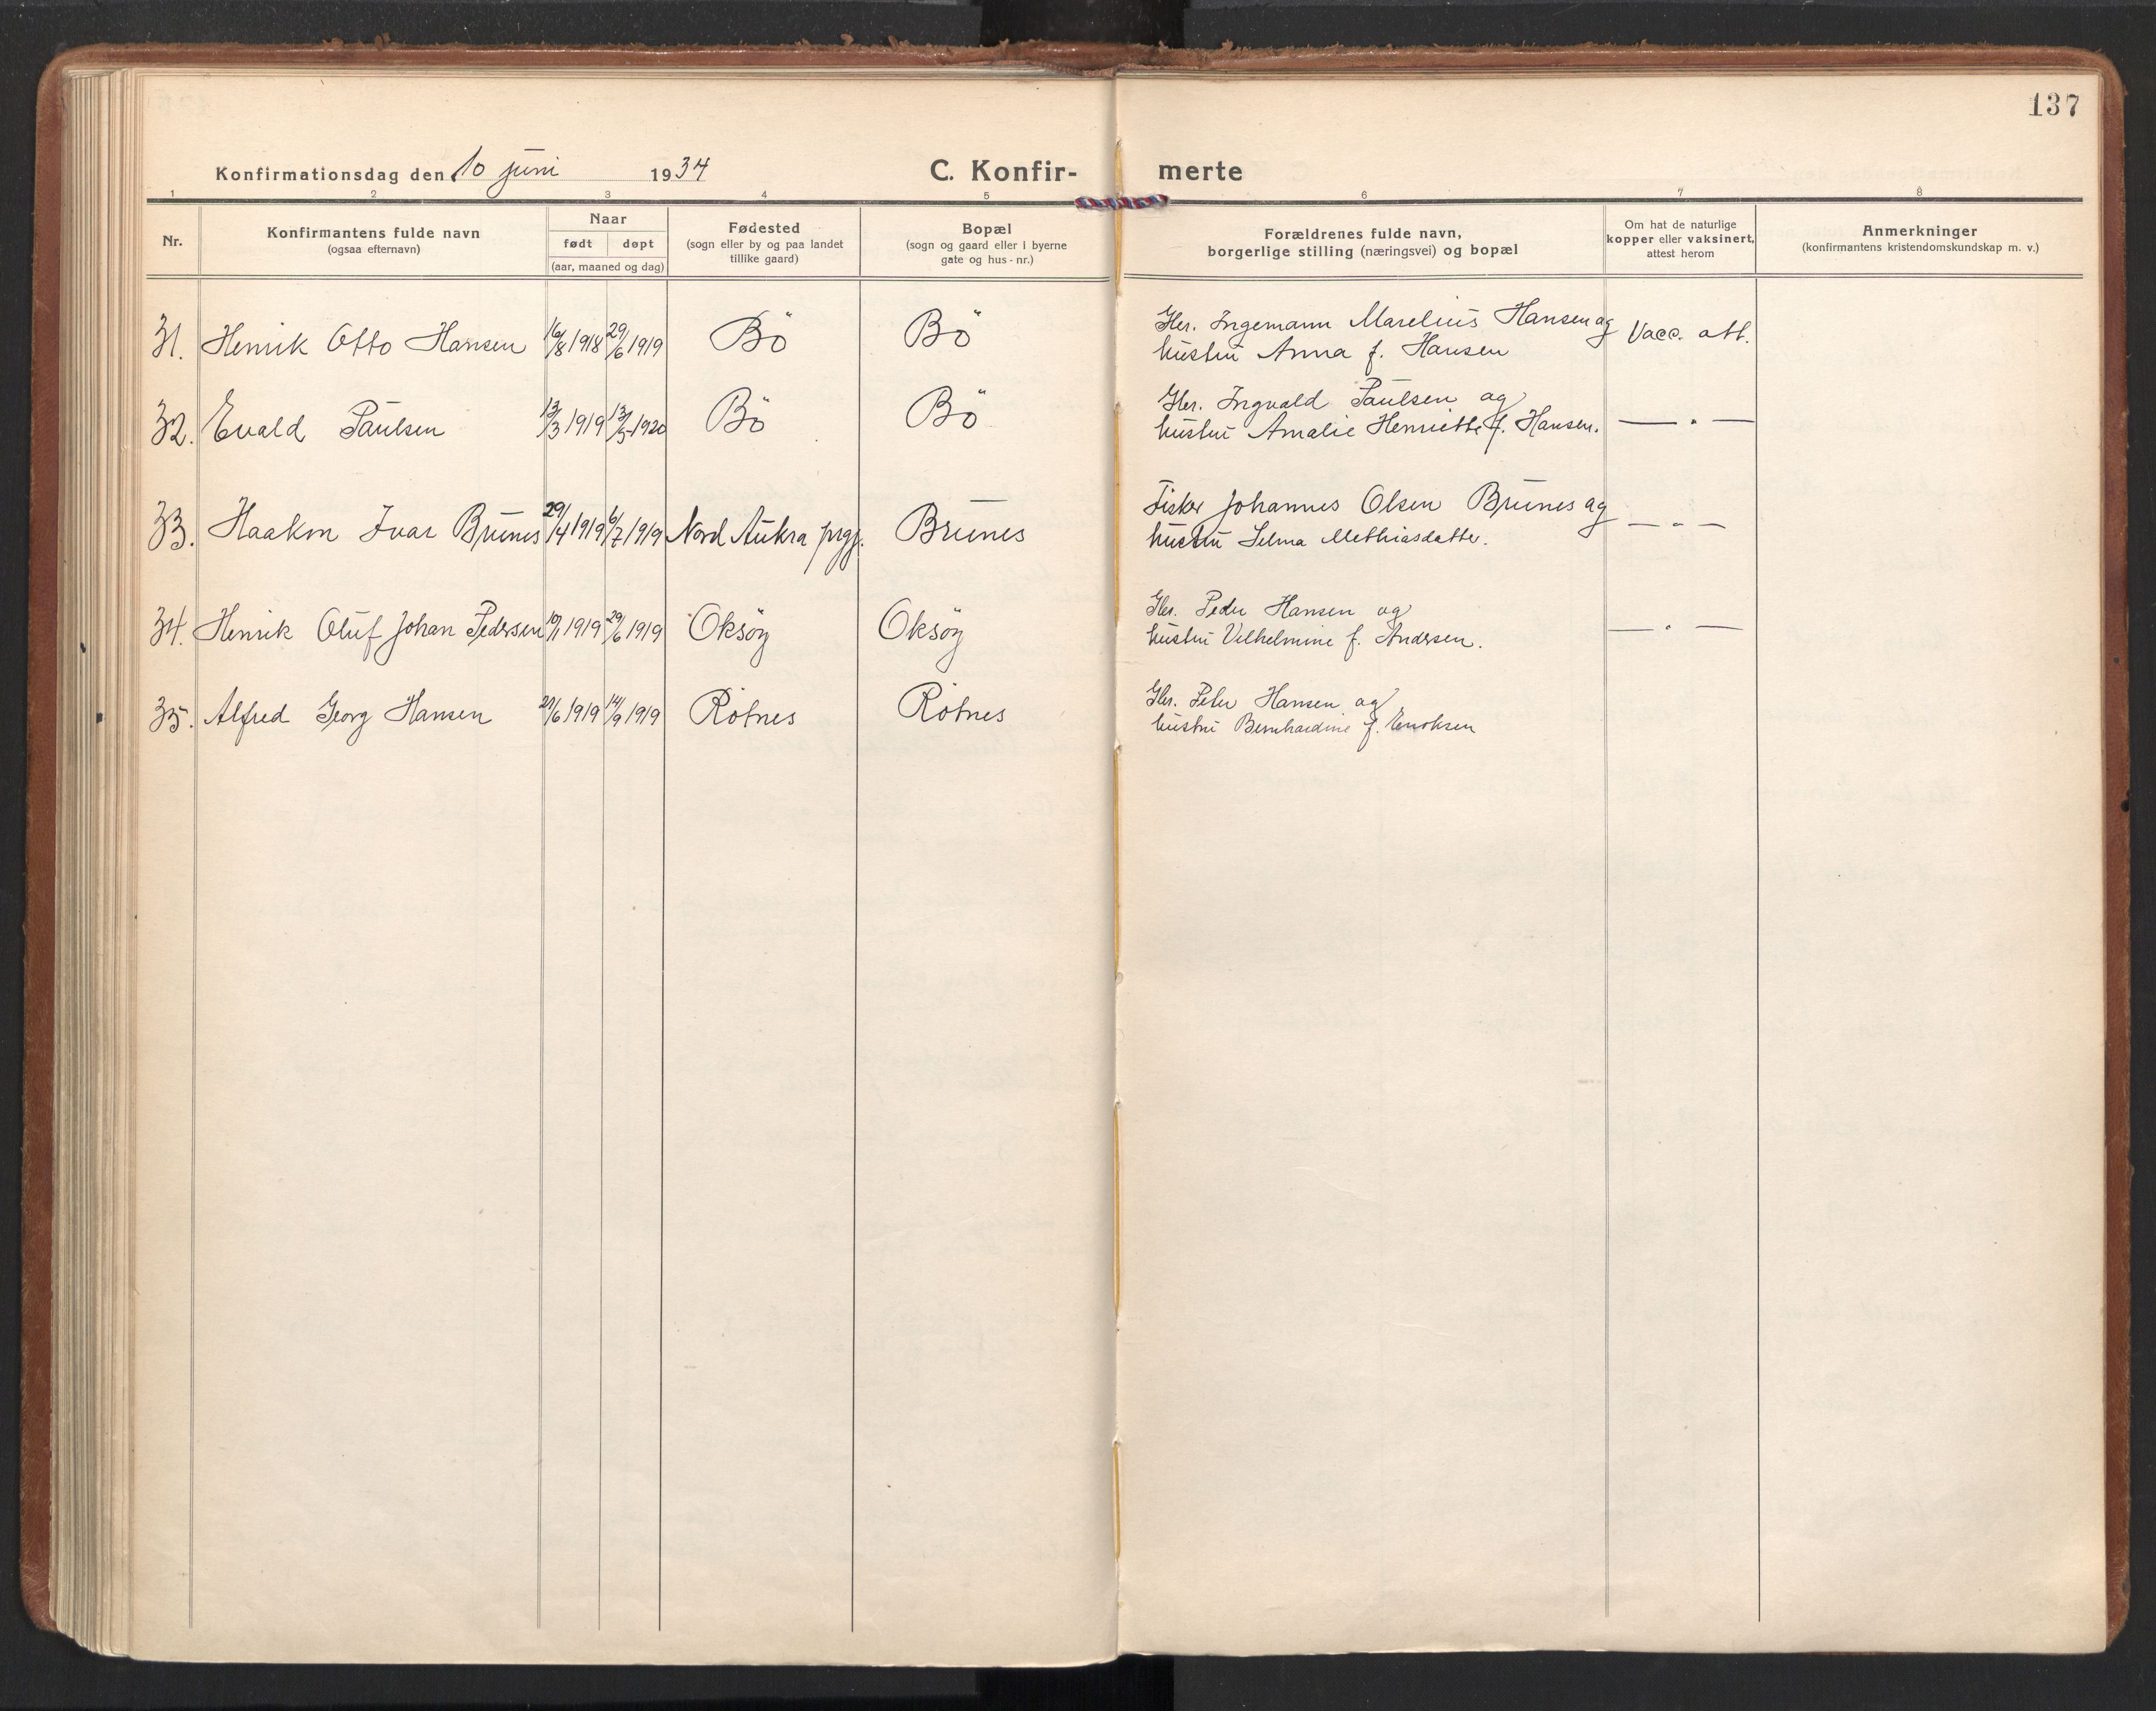 137
Konfirmationsdag den 10 juni 1934 C. Konfir- merte
1 2 3 4 5 6 7 8
Nr.
Konfirmantens fulde navn
(ogsaa efternavn)
Naar
født døpt
(aar, maaned og dag)
Fødested
(sogn eller by og paa landet
tillike gaard)
Bopæl
(sogn og gaard eller i byerne
gate og hus-nr.)
Forældrenes fulde navn,
borgerlige stilling (næringsvei) og bopæl
Om hat de naturlige
kopper eller vaksinert,
attest herom
Anmerkninger
(konfirmantens kristendomskundskap m. v.)
31. Henrik Otto Hansen 16/8 1918 29/6 1919 Bö Bö
Gbr. Ingemann Marelius Hansen og
hustru Anna f. Hansen
Vacc. att.
32. Evald Paulsen 13/3 1919 13/5 1920 Bö Bö
Gbr. Ingvald Paulsen og
hustru Amalie Henriette f. Hansen.
— " —
33. Haakon Ivar Brunes 29/4 1919 6/7 1919 Nord Aukra prgj. Brunes
Fisker Johannes Olsen Brunes og
hustru Selma Methiasdatter.
— " —
34. Henrik Oluf Johan Pedersen 10/1 1919 29/6 1919 Oksöy Oksöy
Gbr. Peder Hansen og
hustru Vilhelmine f. Andersen.
— " —
35. Alfred Georg Hansen /6 1919 14/9 1919 Rötnes Rötnes
Gbr. Peter Hansen og
hustru Bernhardine f. Enoksen